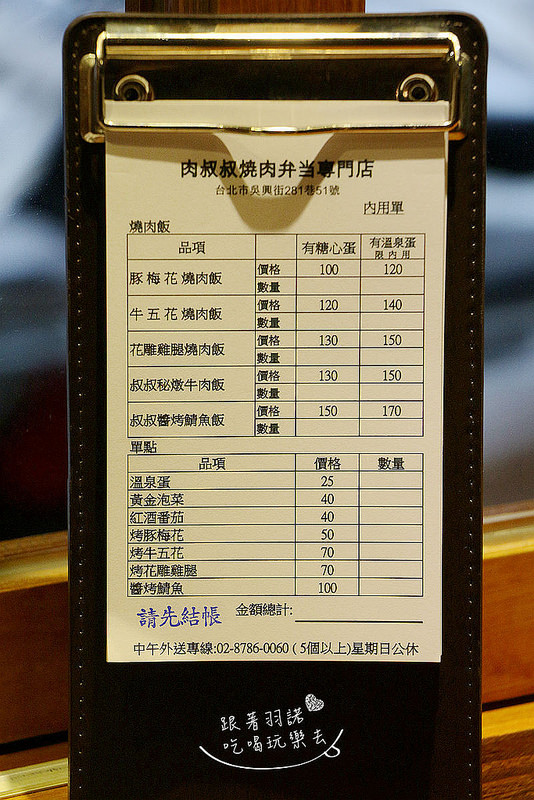 肉叔叔燒肉弁当專門店
台北市吳興街281巷51號
內用單
燒肉飯
品項 有糖心蛋 有溫泉蛋 限內用
豚梅花燒肉飯 價格 100 120
數量
牛五花燒肉飯 價格 120 140
數量
花雕雞腿燒肉飯 價格 130 150
數量
叔叔秘燉牛肉飯 價格 130 150
數量
叔叔醬烤鯖魚飯 價格 150 170
數量
單點
品項 價格 數量
溫泉蛋 25
黃金泡菜 40
紅酒番茄 40
烤豚梅花 50
烤牛五花 70
烤花雕雞腿 70
醬烤鯖魚 100
請先結帳 金額總計:
中午外送專線:02-8786-0060 ( 5個以上)星期日公休
跟著羽諾
吃喝玩樂去